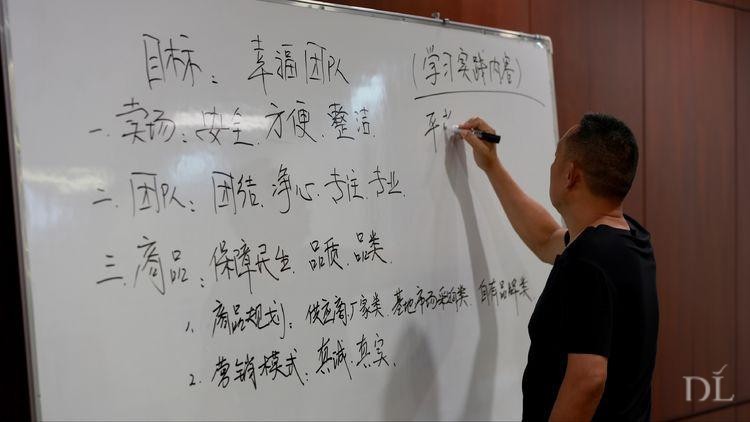 目标：幸福团队
（学习实践内容）
一.卖场：安全.方便.整洁.
平
二.团队：团结.净心.专注.专业.
三.商品：保障民生.品质.品类.
1.商品规划：供应商厂家类.基地市场采购类.自有品牌类.
2.营销模式：真诚.真实.
DL